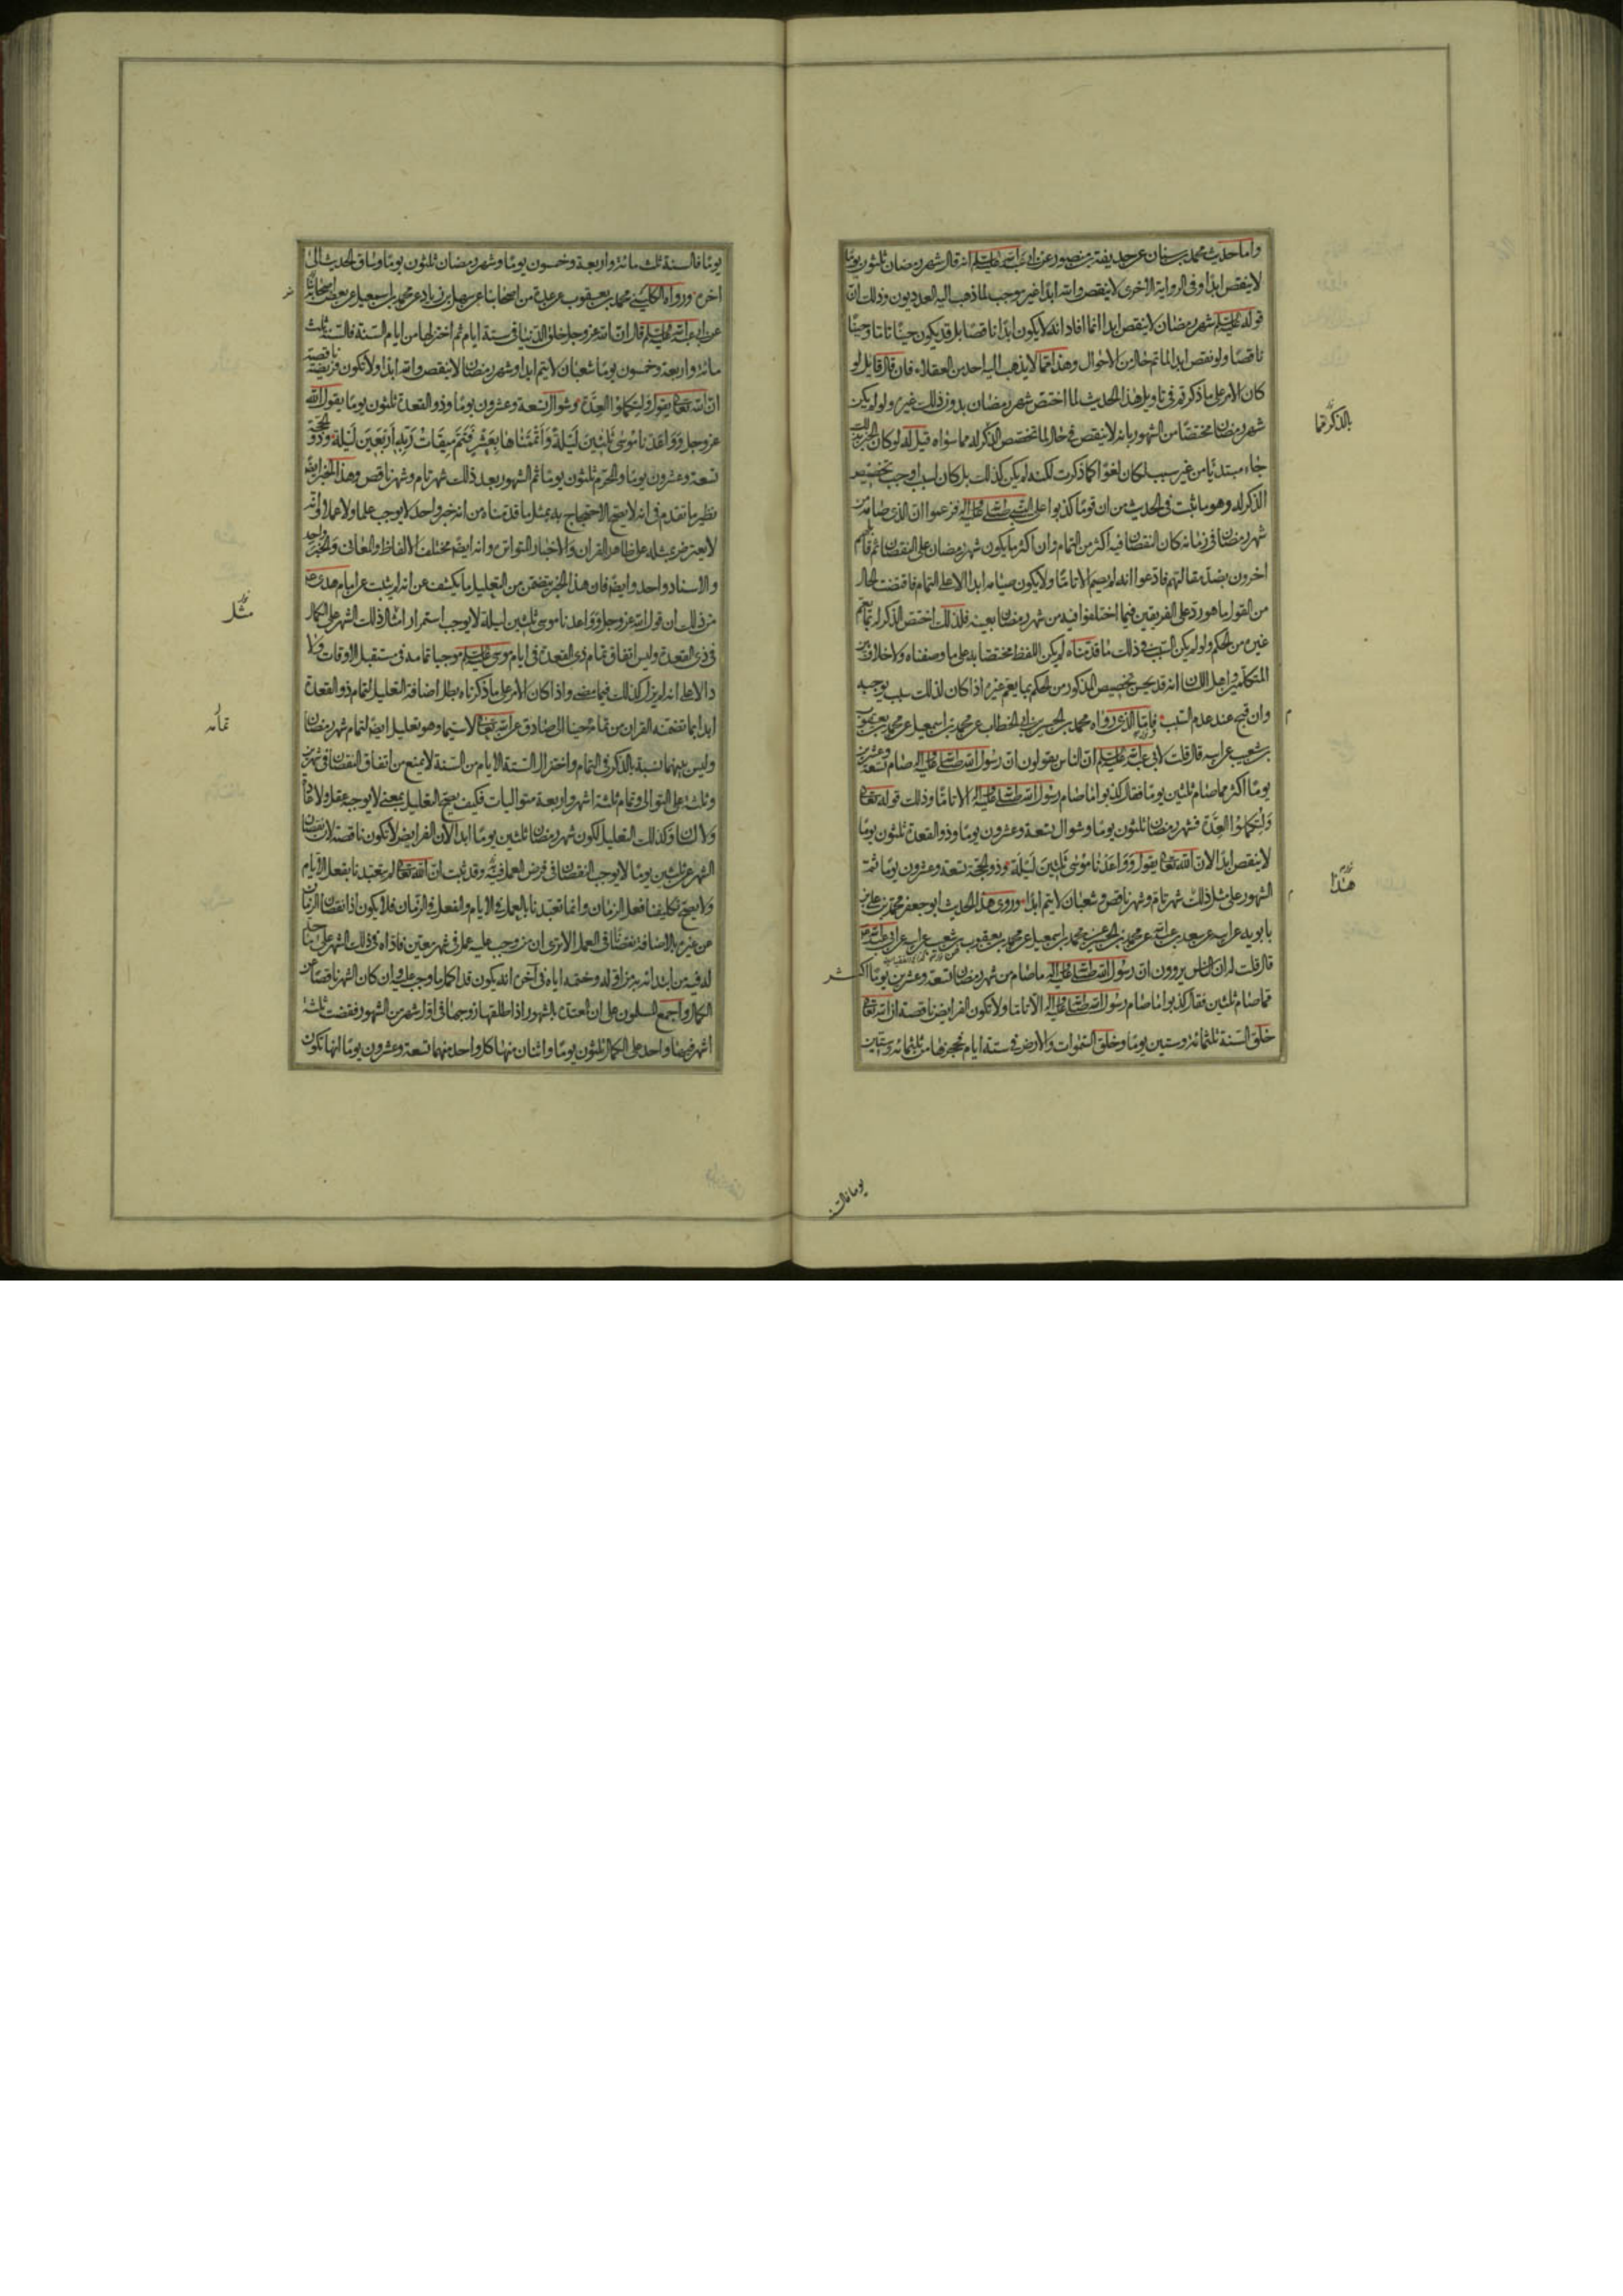 واما حديث محمد بن سنان عن حذيفة بن منصور عن ابى عبدالله عليه السلم انه قال شهر رمضان ثلثون يومًا
لا ينقص ابدًا وفى الرواية الاخرى لا ينقص والله ابدًا غير موجب لما ذهب اليه العدديون وذلك ان
قوله عليه السلم شهر رمضان لا ينقص ابدا انما افاد انه لا يكون ابدًا ناقصًا بل قد يكون حينًا تاما وحينًا
ناقصًا ولو نقص ابدا لما تم حال من الاحوال وهذا مما لا يذهب اليه احد من العقلاء فان قال قايل لو
كان الامر على ما ذكرتم فى تاويل هذا الحديث لما اختص شهر رمضان بذلك دون غيره ولو لم يكن
شهر رمضان مختصًا من الشهور بانه لا ينقص فى حال لما تخصص الذكر له مما سواه قيل له لو كان الخبر بذلك
جاء مبتدئا من غير سبب لكان لغوًا كما ذكرت لكنه لم يكن كذلك بل كان لسبب اوجب تخصيص
الذكر له وهو ما ثبت فى الحديث من ان قومًا كذبوا على النبى صلى الله عليه واله فزعموا ان الذى صامه من
شهر رمضان فى زمانه كان النقصان فيه اكثر من التمام وان اكثر ما يكون شهر رمضان على النقصان ثم قابلهم
اخرون بضد مقالتهم فادعوا انه لم يصم الا تامًا ولا يكون صيامه ابدًا الا على التمام فاقتضت الحال
من القول ما هو رد على الفريقين فيما اختلفوا فيه من شهر رمضان بعينه فلذلك اختص الذكر له بما يعم
غيره من الحكم ولو لم يكن السبب فى ذلك ما قدمناه لم يكن اللفظ مختصا به على ما وصفناه ولا خلاف بين
المتكلمين واهل اللسان انه قد يحسن تخصيص المذكور من الحكم بما يعم غيره اذا كان لذلك سبب يوجبه
وان قبح عند عدم السبب فاما الذى رواه محمد بن الحسين بن ابى الخطاب عن محمد بن اسمعيل عن محمد بن يعقوب
بن شعيب عن ابيه قال قلت لابى عبدالله عليه السلم ان الناس يقولون ان رسول الله صلى الله عليه واله صام تسعة وعشرين
يومًا اكثر مما صام ثلثين يومًا فقال كذبوا ما صام رسول الله صلى الله عليه واله الا تامًا وذلك قوله تعالى
وَلِتُكمِلوُا العِدَّة فشهر رمضان ثلثون يومًا وشوال تسعة وعشرون يومًا وذو القعدة ثلثون يومًا
لا ينقص ابدًا لان الله تعالى يقول وَوَاعَدْنا مُوسٰى ثَلثينَ لَيْلَة وذو الحجة تسعة وعشرون يومًا ثمّ
الشهور على مثل ذلك شهر تامّ وشهر ناقص وشعبان لا يتم ابدًا وروى هذا الحديث ابو جعفر محمد بن على بن
بابويه عن ابيه عن سعد بن عبدالله عن محمد بن الحسين عن محمد بن اسمعيل عن محمد بن يعقوب بن شعيب عن ابيه عن ابى عبدالله
قال قلت له ان الناس يروون ان رسول الله صلى الله عليه واله ما صام من شهر رمضان تسعة وعشرين يومًا اكثر
مما صام ثلثين فقال كذبوا ما صام رسول الله صلى الله عليه واله الا تاما ولا تكون الفرايض ناقصة ان الله تعالى
خلق السنة ثلثمائة وستين يومًا وخلق السموات والارض فى ستة ايام فحجزها من ثلثمائة وستين
بالذكر مما
هذا
يوما فالسنة
يومًا فالسنة ثلث مائة واربعة وخمسون يومًا وشهر رمضان ثلثون يومًا وساق الحديث الى
اخره ورواه الكلينى محمد بن يعقوب عن عدة من اصحابنا عن سهل بن زياد عن محمد بن اسمعيل عن بعض اصحابنا
عن ابى عبدالله عليه السلم قال ان الله عز وجل خلق الدنيا فى ستة ايام ثم اختزلها من ايام السنة فالسنة ثلث
مائة واربعة وخمسون يومًا شعبان لا يتم ابدا وشهر رمضان لا ينقص والله ابدًا ولا تكون فريضة ناقصة
ان الله تعالى يقول وَلِتُكملوُا العِدَّة وشوال تسعة وعشرون يومًا وذو القعدة ثلثون يومًا يقول الله
عز وجل وَوَاعَدْنا مُوسٰى ثَلثينَ لَيْلَةً وَاَتْمَمْناهَا بِعَشْرٍ فَتَمَّ مِيقَاتُ رَبِّهِ اَرْبَعينَ لَيْلَة وذو الحجة
تسعة وعشرون يومًا والمحرم ثلثون يومًا ثم الشهور بعد ذلك شهر تام وشهر ناقص وهذا الخبر ايضًا
نظير ما تقدم فى انه لا يصح الاحتجاج به بمثل ما قدمناه من انه خبر واحد لا يوجب علما ولا عملا وانه
لا يعترض بمثله على ظاهر القران والاخبار المتواترة وانه ايضًا مختلف الالفاظ والمعانى والخبر واحد
والاسناد واحد وايضا فان هذا الخبر يتضمن من التعليل ما يكشف عن انه لم يثبت عن امام هدى عليه السلم
من ذلك ان قول الله عز وجل وَوَاعدنا موسى ثلثين ليلة لا يوجب استمرار امثال ذلك الشهر على الكمال
فى ذى القعدة وليس اتفاق تمام ذى القعدة فى ايام موسى عليه السلم موجبا تمامه فى مستقبل الاوقات ولا
دالا على انه لم يزل كذلك فيما مضى واذا كان الامر على ما ذكرناه بطل اضافة التعليل لتمام ذو القعدة
ابدا بما تضمنه القران من تمامه حينا الى الصادق عن الله تعالى لا سيما وهو تعليل ايضا لتمام شهر رمضان
وليس بينهما نسبة بالذكر فى التمام واختزال الستة الايام من السنة لا يمنع من اتفاق النقصان فى شهرين
وثلثة على التوالى وتمام ثلثة اشهر واربعة متواليات فكيف يصح التعليل بمعنى لا يوجبه عقل ولا عادة
ولا لسان وكذلك التعليل لكون شهر رمضان ثلثين يومًا ابدا لان الفرايض لا تكون ناقصة لان نقصان
الشهر عن ثلثين يومًا لا يوجب النقصان فى فرض العمل فيه وقد ثبت ان الله تعالى لم يتعبدنا بفعل الايام
ولا يصح تكليفنا فعل الزمان وانما تعبدنا بالعمل فى الايام والفعل فى الزمان فلا يكون اذا نقصان الزمان
عن غيره بالاضافة نقصانا فى العمل الا ترى ان من وجب عليه عمل فى شهر معين فاداه فى ذلك الشهر على ما حد
له فيه من ابتدائه به من اوله وختمه اياه فى آخره انه يكون قد اكمل ما وجب عليه وان كان الشهر ناقصًا عن
الكمال واجمع المسلمون على ان المعتدة بالشهور اذا طلقها زوجها فى اول شهر من الشهور فقضت ثلثة
اشهر فيها واحد على الكمال ثلثون يومًا واثنان منها كل واحد منهما تسعة وعشرون يومًا انها تكون
مثل
تمامه